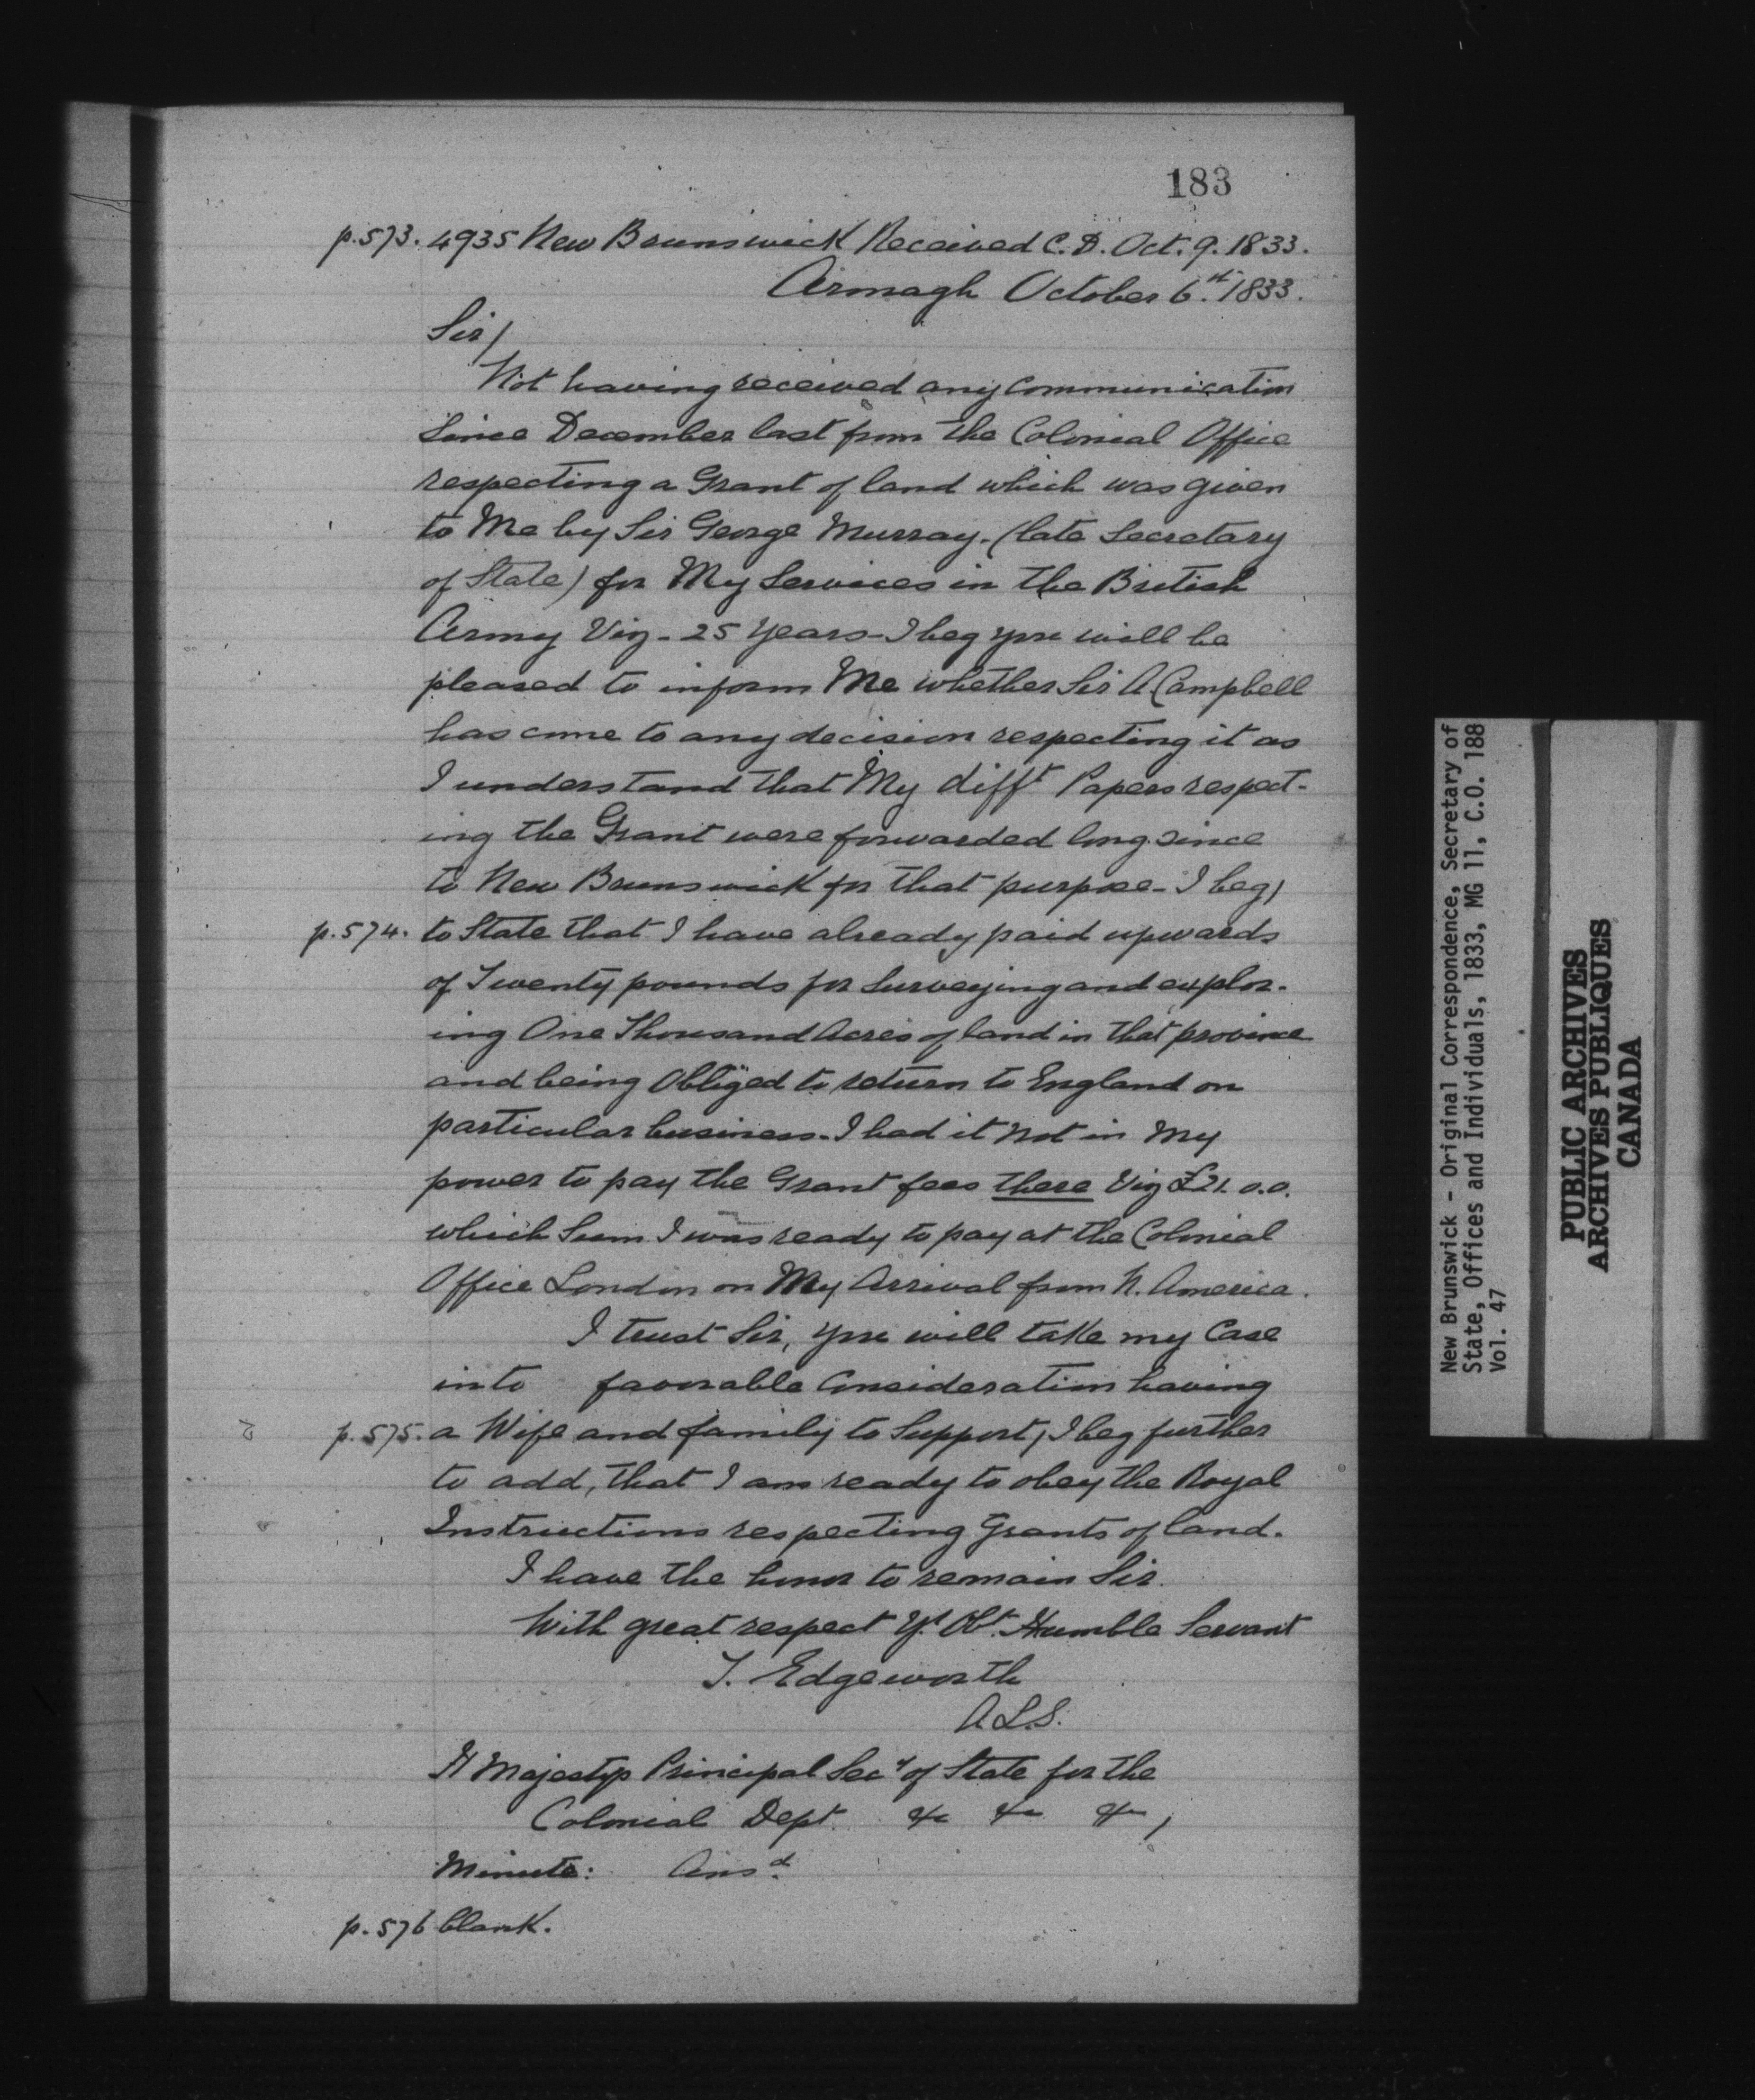 183
p.573. 4935 New Brunswick Received C.D. Oct. 9. 1833.
Armagh October 6.th 1833.
Sir/
Not having received any communication
since December last from the Colonial Office
respecting a Grant of land which was given
to Me by Sir George Murray. (late Secretary
of State) for My Services in the British
Army Viz - 25 Years - I beg you will be
pleased to inform Me whether Sir A Campbell
has come to any decision respecting it as
I understand that My difft Papers respect-
ing the Grant were forwarded long since
to New Brunswick for that purpose - I beg,
p.574. to State that I have already paid upwards
of Twenty pounds for Surveying and explor-
ing One Thousand Acres of land in that province
and being Obliged to return to England on
particular business. I had it not in My
power to pay the Grant fees there Viz £21.0.0.
which Sum I was ready to pay at the Colonial
Office London on My Arrival from N. America.
I trust Sir, you will take my Case
into favorable Consideration having
p.575. a Wife and family to Support, I beg further
to add, that I am ready to obey the Royal
Instructions respecting Grants of land.
I have the honor to remain Sir.
With great respect Yr. Obt. Humble Servant
T. Edgeworth
A.L.S.
H Majestys Principal Secy of State for the
Colonial Dept. &c &c &c,
Minute: Ansd.
p.576 blank.
New Brunswick - Original Correspondence, Secretary of
State, Offices and Individuals, 1833, MG 11, C.O. 188
Vol. 47
PUBLIC ARCHIVES
ARCHIVES PUBLIQUES
CANADA